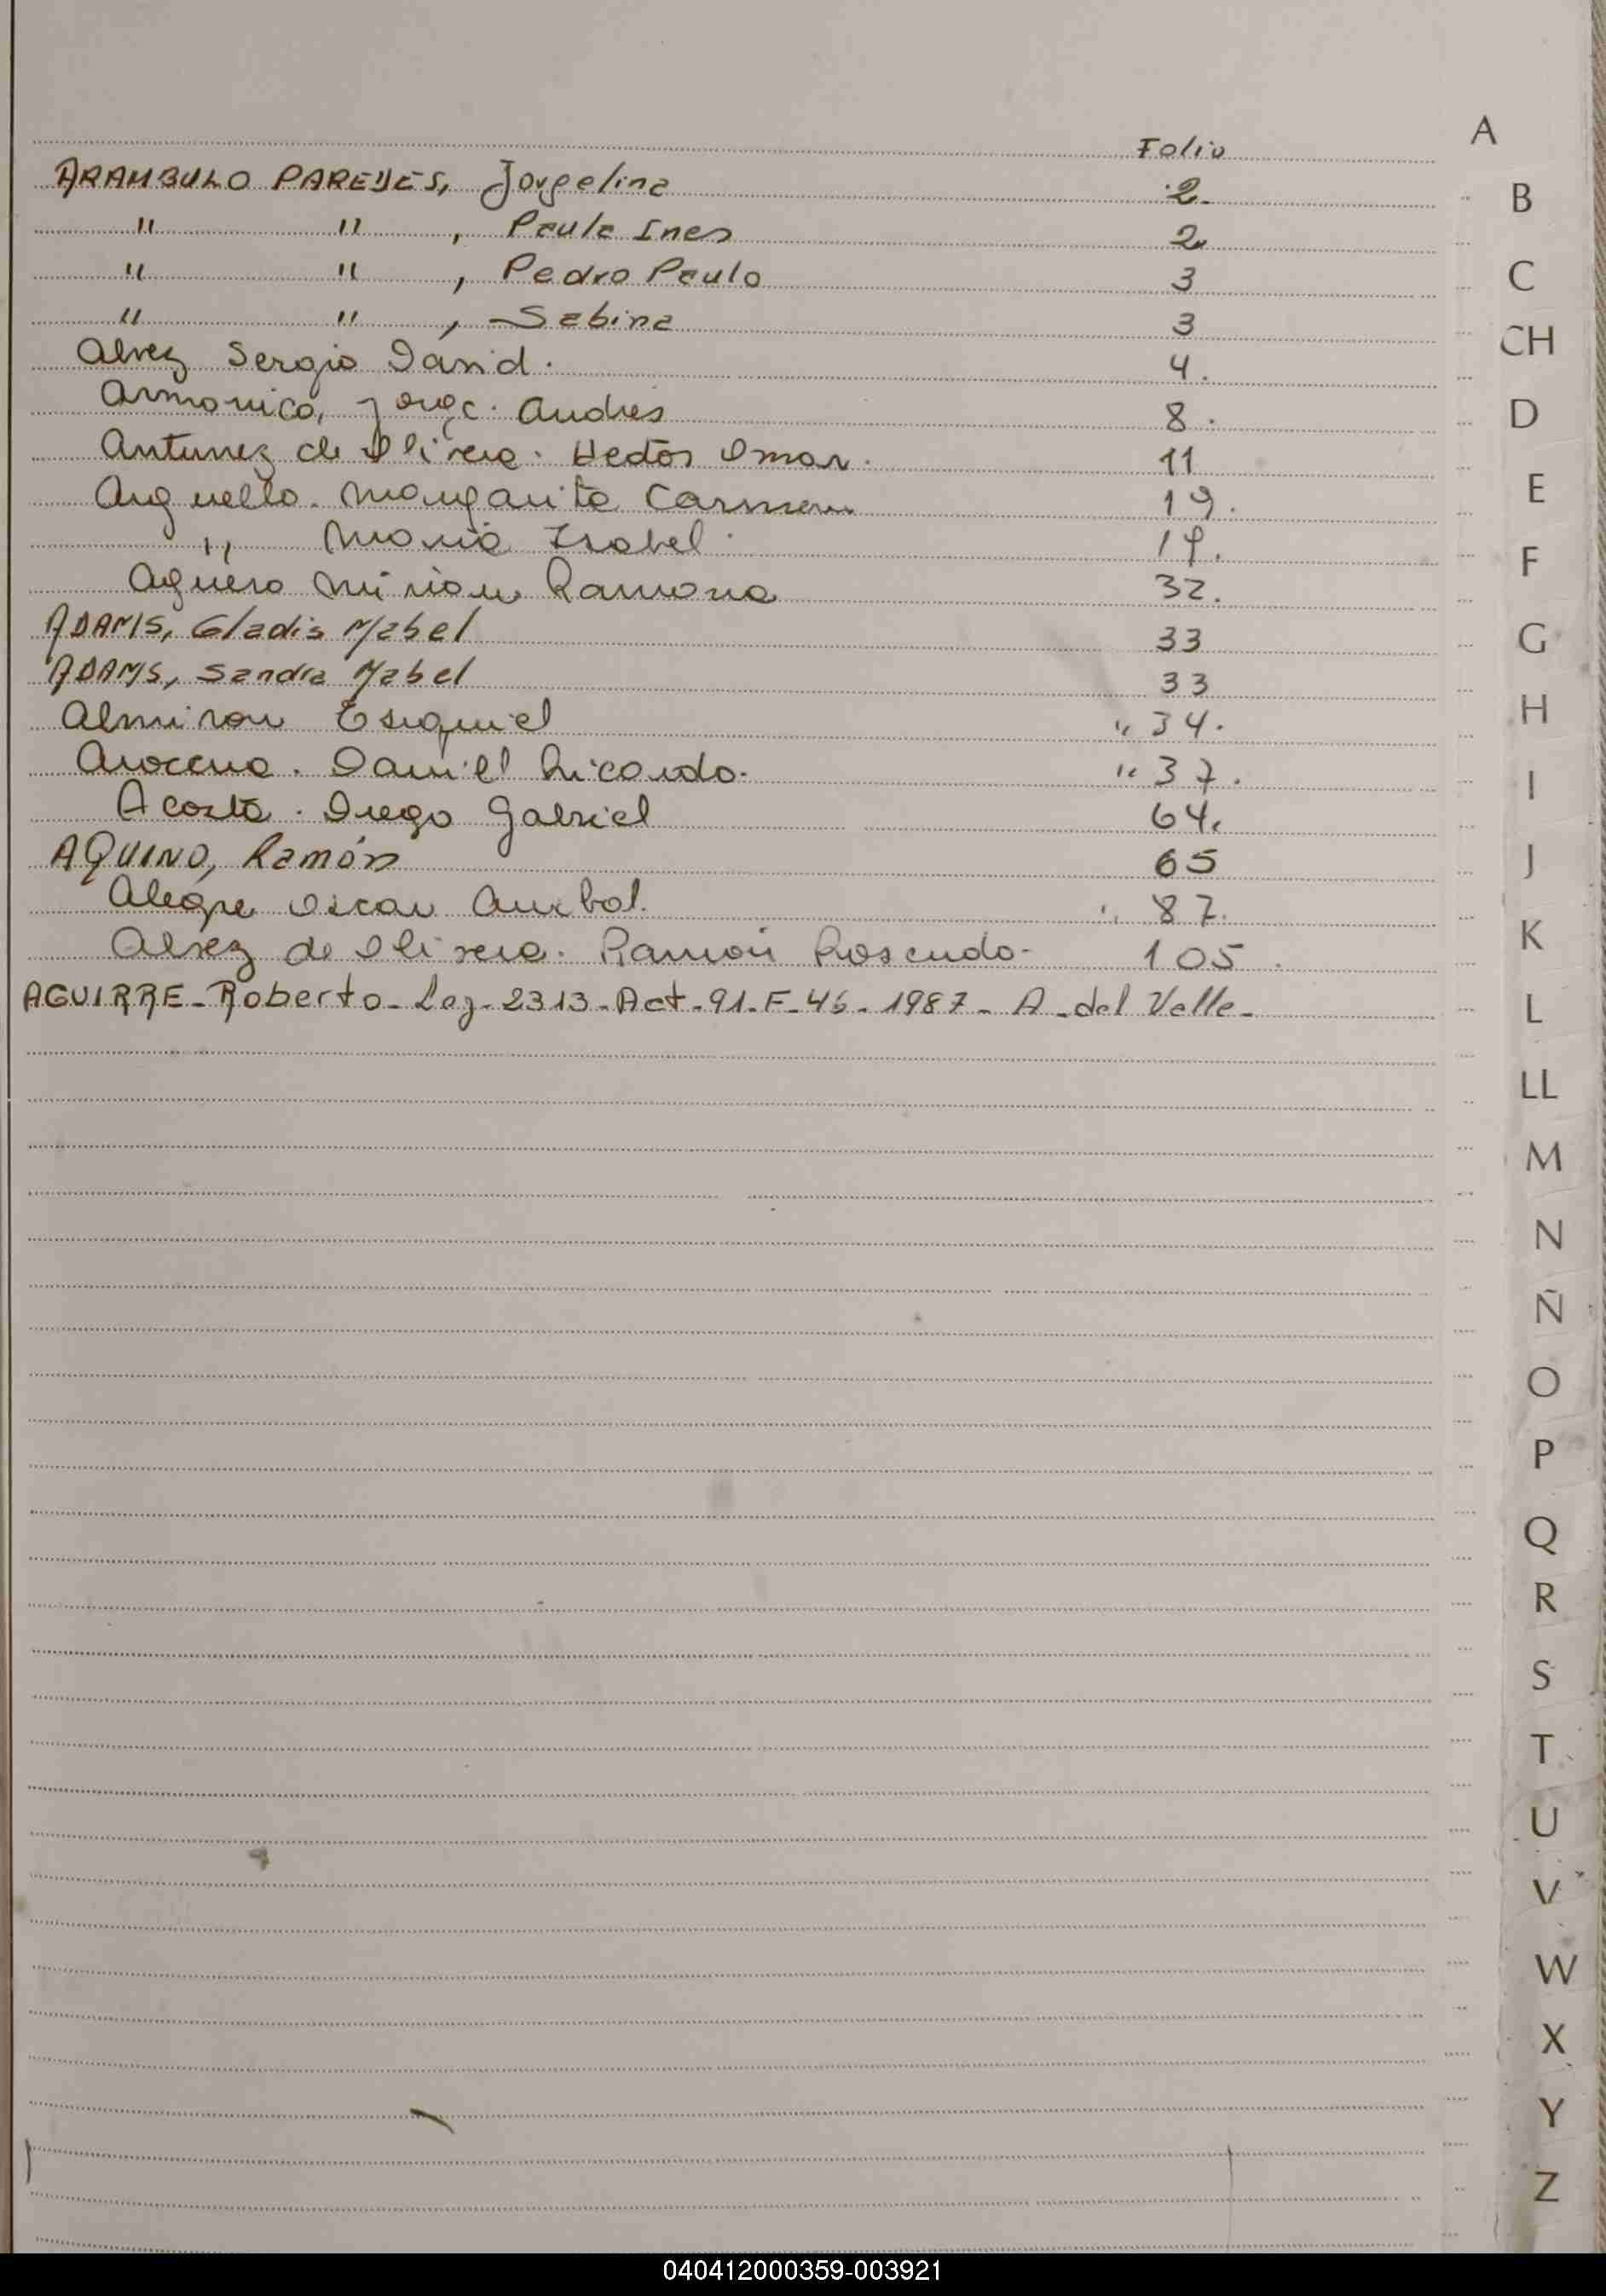 A
Folio
ARAMBULO PAREDES, Jorgelina 2.
" " , Paula Ines 2.
" " , Pedro Paulo 3
" " , Sabina 3
Alvez Sergio David. 4.
Armonico, Jorge. Andres 8.
Antunez de Olivera. Hector Omar. 11
Arguello. Margarita Carmen 19.
" Maria Isabel. 19.
Aguero Miriam Ramona 32.
ADAMS, Gladis Mabel 33
ADAMS, Sandra Mabel 33
Almiron Esequiel " 34.
Arocena. Daniel Ricardo. " 37.
Acosta. Diego Gabriel 64.
AQUINO, Ramón 65
Alegre Oscar Anibal. " 87.
Alvez de Olivera. Ramon Rosendo. 105.
AGUIRRE - Roberto - Leg. 2313 - Act - 91 - F - 46 - 1987 - A - del Valle -
B
C
CH
D
E
F
G
H
I
J
K
L
LL
M
N
Ñ
O
P
Q
R
S
T
U
V
W
X
Y
Z
040412000359-003921